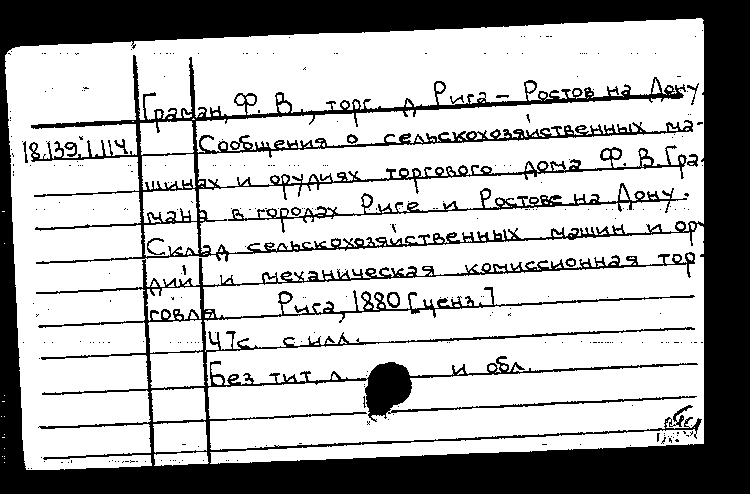 Граман, Ф. В., торг. д. Рига – Ростов на Дону.
18.139.1.114. Сообщения о сельскохозяйственных ма-
шинах и орудиях торгового дома Ф. В. Гра-
мана в городах Риге и Ростове на Дону.
Склад сельскохозяйственных машин и ору
дий и механическая комиссионная тор-
говля. Рига, 1880 [ценз.]
47с. с илл.
Без тит. л. и обл.